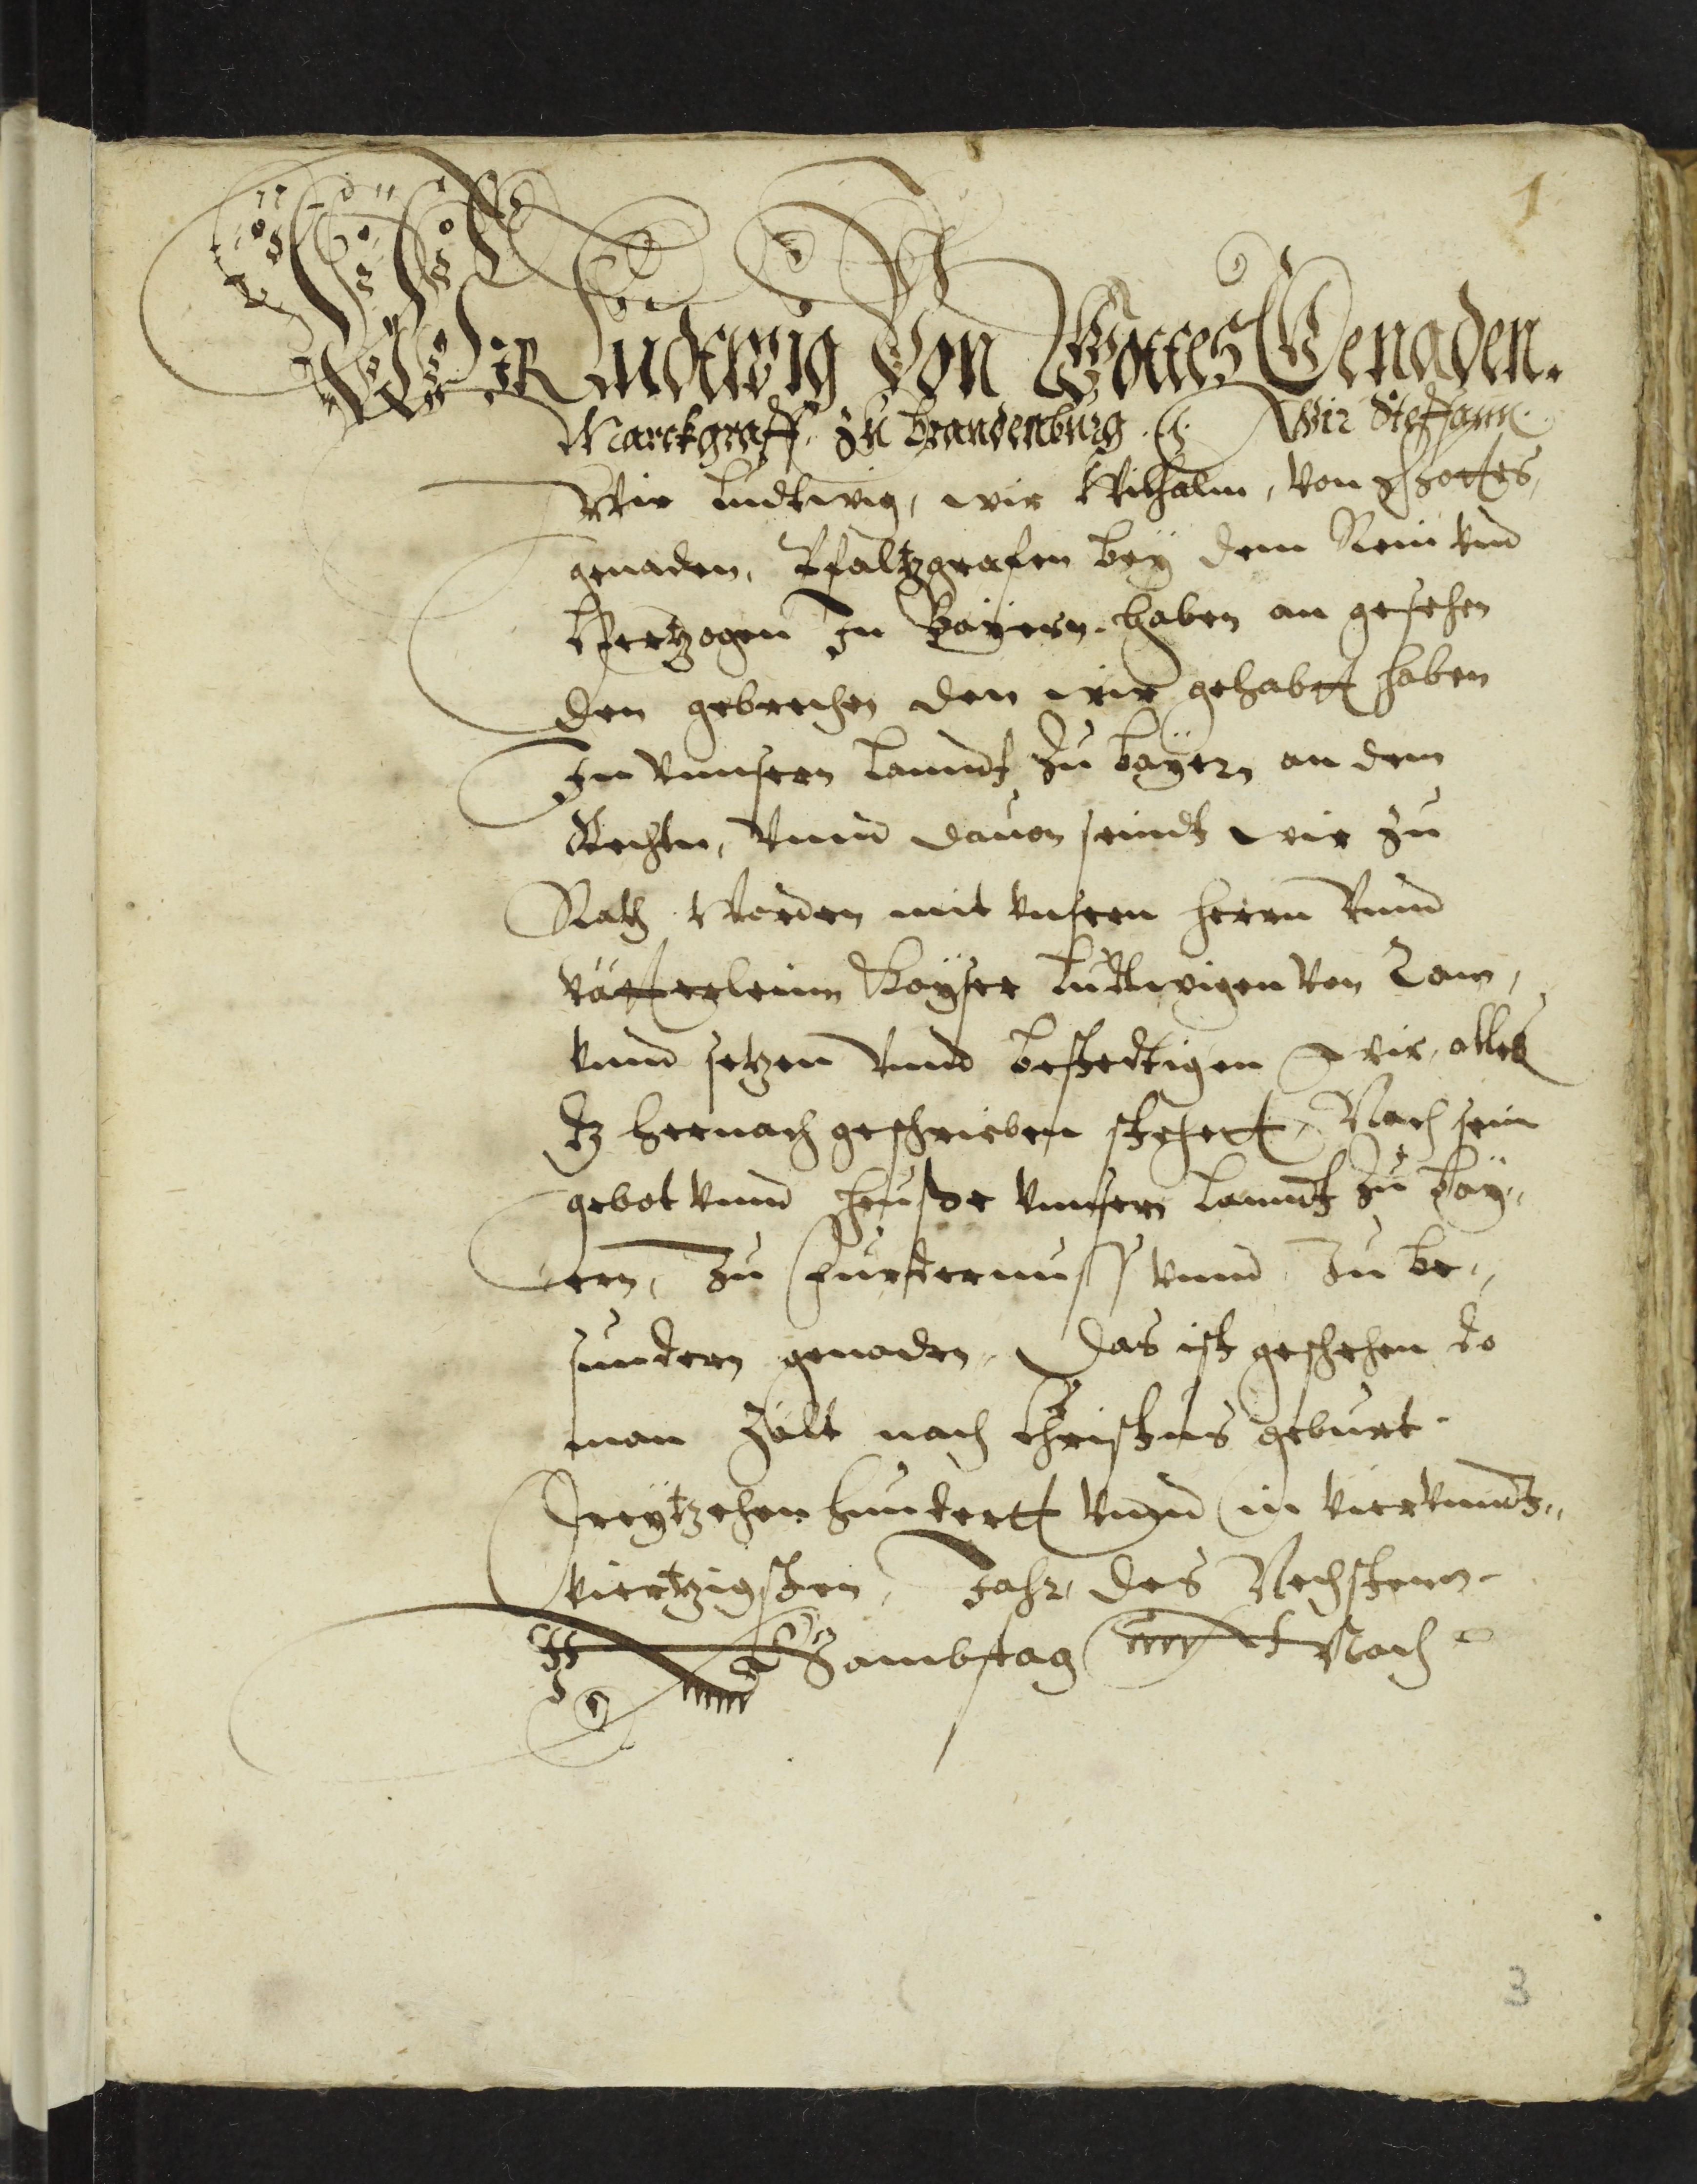 1
WIR Ludtwig Von Gottes Genaden.
Marckgraff. zu Brandenburg. Wir Steffann.
Wir Ludtwig, wir Wilhalm, von Gottes,
genaden, Pfaltzgrafen bey dem Rein vnd
Hertzogen In Bayern. haben an gesehen
den gebrechen den wir gehabtt haben
In vnnsern lanndt zu bayern an dem
Rechten, vnnd dauon seindt wir zu
Rath Worden mit vnsern herrn vnnd
vätterleinn Kayser ludtwigen von Rom,
vnnd setzen vnnd bestedtigen wir, alles
dz hernach geschrieben stehett, Nach sein
gebot vnnd vnnsern lanndt zu bay„
ern, Zu furdernuss vnnd Zu be„
sundern genaden, Das ist geschehen do
man zalt nach Christus geburt.
Dreytzehen hundertt vnnd in viervnndt„
viertzigsten, Jahr, des Nechstenn
Sambstag Nach
3